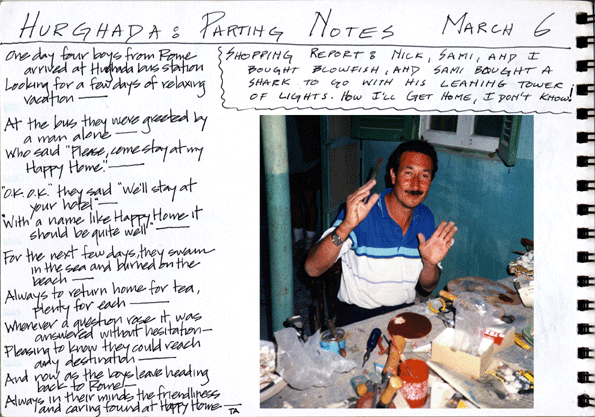 HURGHADA: PARTING NOTES MARCH 6
One day four boys from Rome
arrived at Hurghada bus station
Looking for a few days of relaxing
vacation —
At the bus they were greeted by
a man alone —
Who said "Please, come stay at my
Happy Home." —
"O.K. O.K." they said "We'll stay at
your hotel" —
"With a name like Happy Home it
should be quite well" —
For the next few days, they swam
in the sea and burned on the
beach —
Always to return home for tea,
plenty for each —
Whenever a question rose it was
answered without hesitation —
Pleasing to know they could reach
any destination —
And now as the boys leave heading
back to Rome! —
Always in their minds the friendliness
and caring found at Happy Home — TA
SHOPPING REPORT: NICK, SAMI, AND I
BOUGHT BLOWFISH, AND SAMI BOUGHT A
SHARK TO GO WITH HIS LEANING TOWER
OF LIGHTS. HOW I'LL GET HOME, I DON'T KNOW!